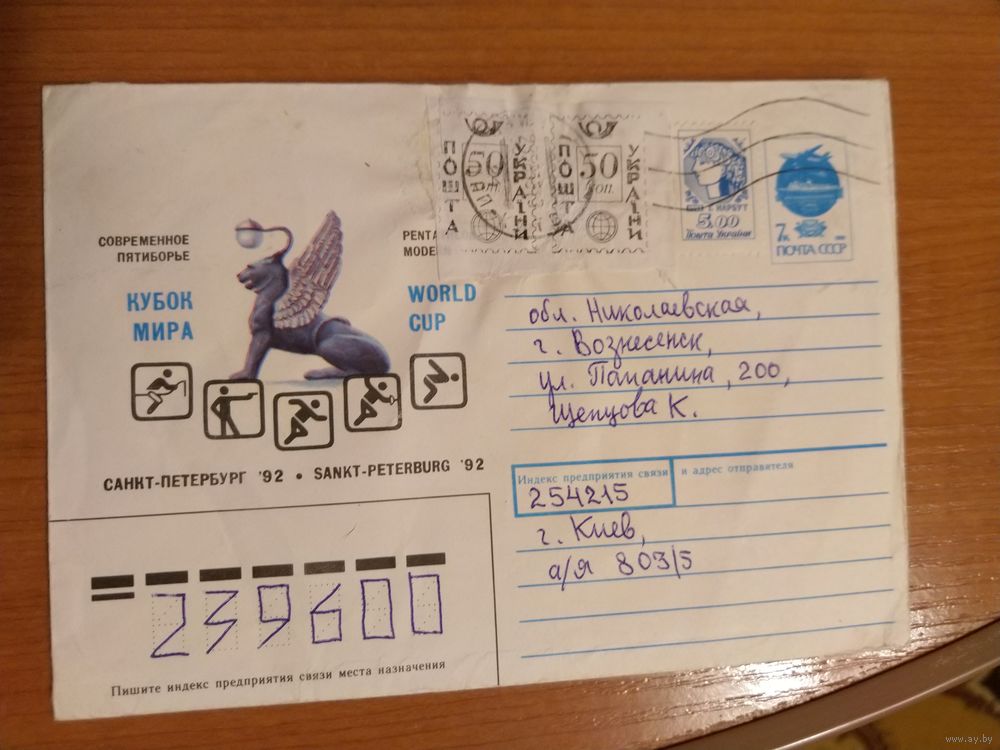 СОВРЕМЕННОЕ
ПЯТИБОРЬЕ
КУБОК
МИРА
PENTA
MODE
WORLD
CUP
САНКТ-ПЕТЕРБУРГ '92 • SANKT-PETERBURG '92
ПОШТА
50
УКРАЇНИ
ПОШТА
50
коп.
УКРАЇНИ
Г. НАРБУТ
5.00
Пошта України
7к
ПОЧТА СССР
обл. Николаевская,
г. Вознесенск,
ул. Папанина, 200,
Щепцова К.
Индекс предприятия связи и адрес отправителя
254215
г. Киев,
а/я 803/5
239600
Пишите индекс предприятия связи места назначения
www.ay.by